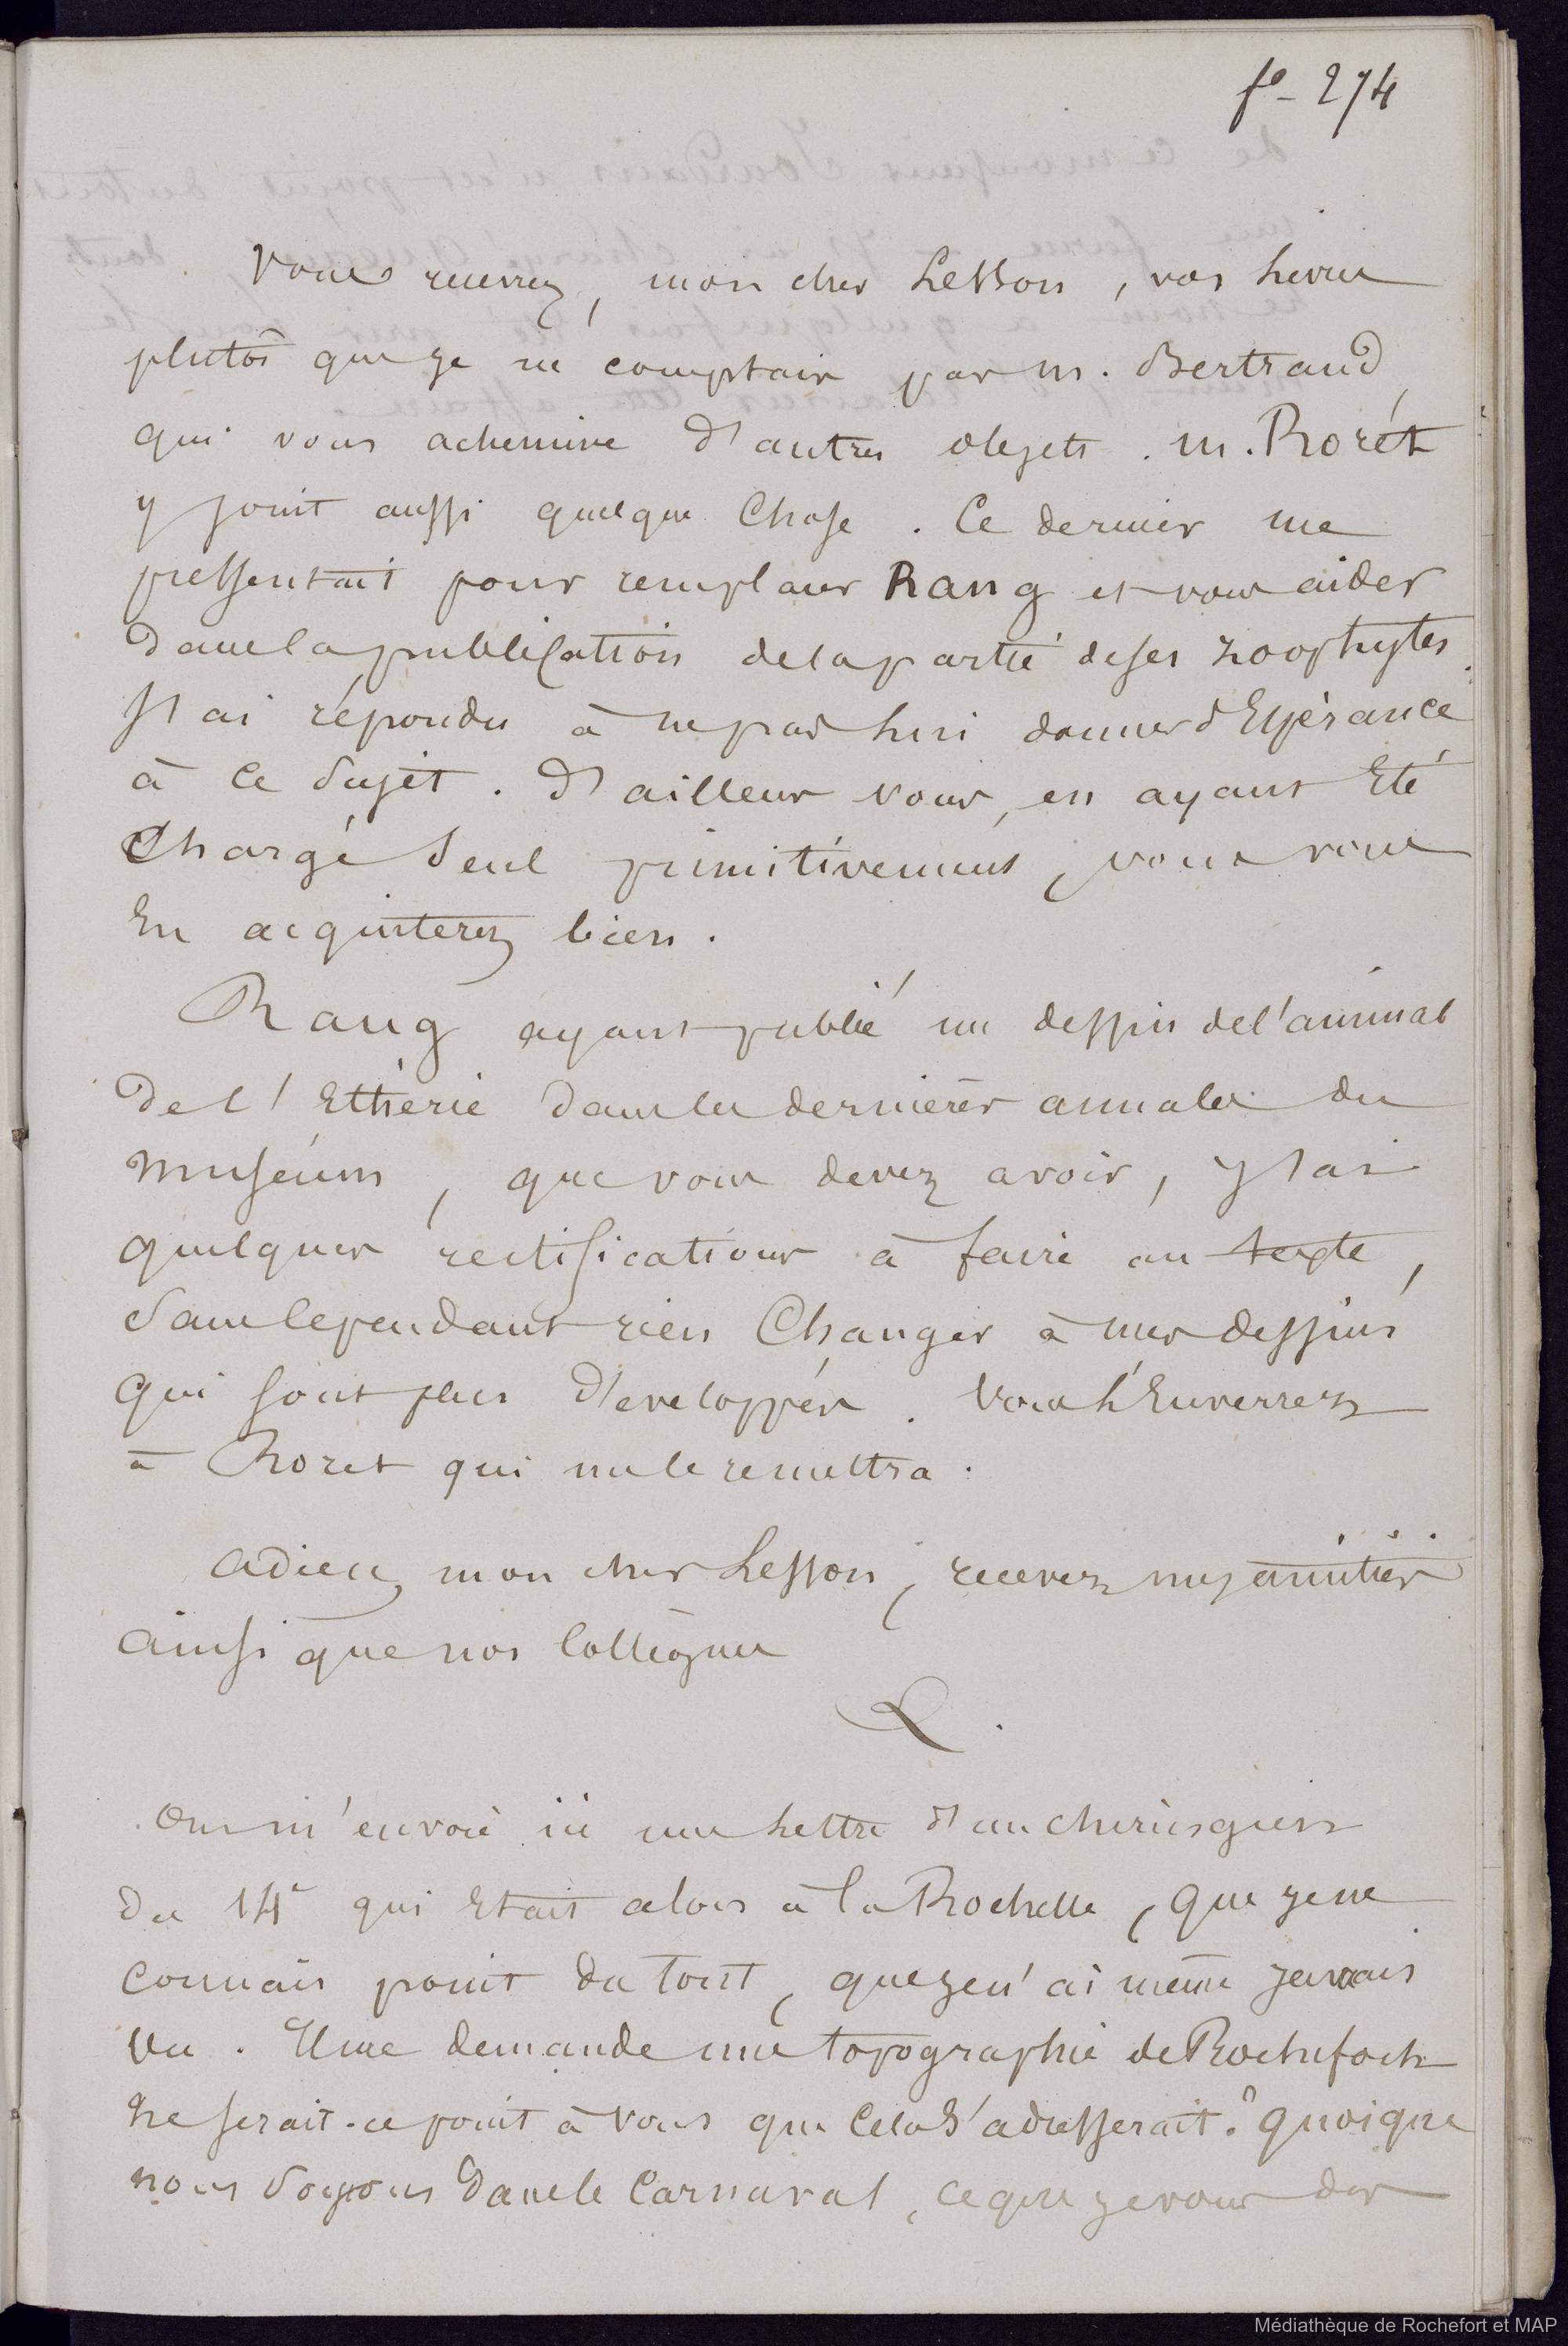 f° - 274
Vous recevrez, mon cher Lesson, vos livres
plutôt que je ne comptais par m. Bertrand
qui vous achemine d'autres objets. m. Rorét
y joint aussi quelque Chose. Ce dernier me
pressentait pour remplacer Rang et vous aider
dans la publication de la partie de ses zoophytes.
J'ai répondu à ne pas lui donner d'Espérance
à Ce Sujet. D'ailleurs vous, en ayant Eté
Chargé Seul primitivement, vous vous
En acquitterez bien.
Rang ayant publié un dessin de l'animal
de l'Ethérie dans les dernières annales du
muséum, que vous devez avoir, J'ai
quelques rectifications à faire au texte,
Sans Cependant rien Changer à mes dessins
qui sont plus Développés. Vous l'Enverrez
à Roret qui me le remettra.
adieu, mon cher Lesson, recevez mes amitiés
ainsi que nos Collègues
Q.
On m'envoie ici une Lettre d'un chirurgien
du 14e qui Etait alors à la Rochelle, que je ne
connais point du tout, que je n'ai même jamais
vu. Il me demande une topographie de Rochefort
Ne serait-ce point à vous que Cela S'adresserait? quoique
nous Soyons dans le Carnaval, ce que je vous dis